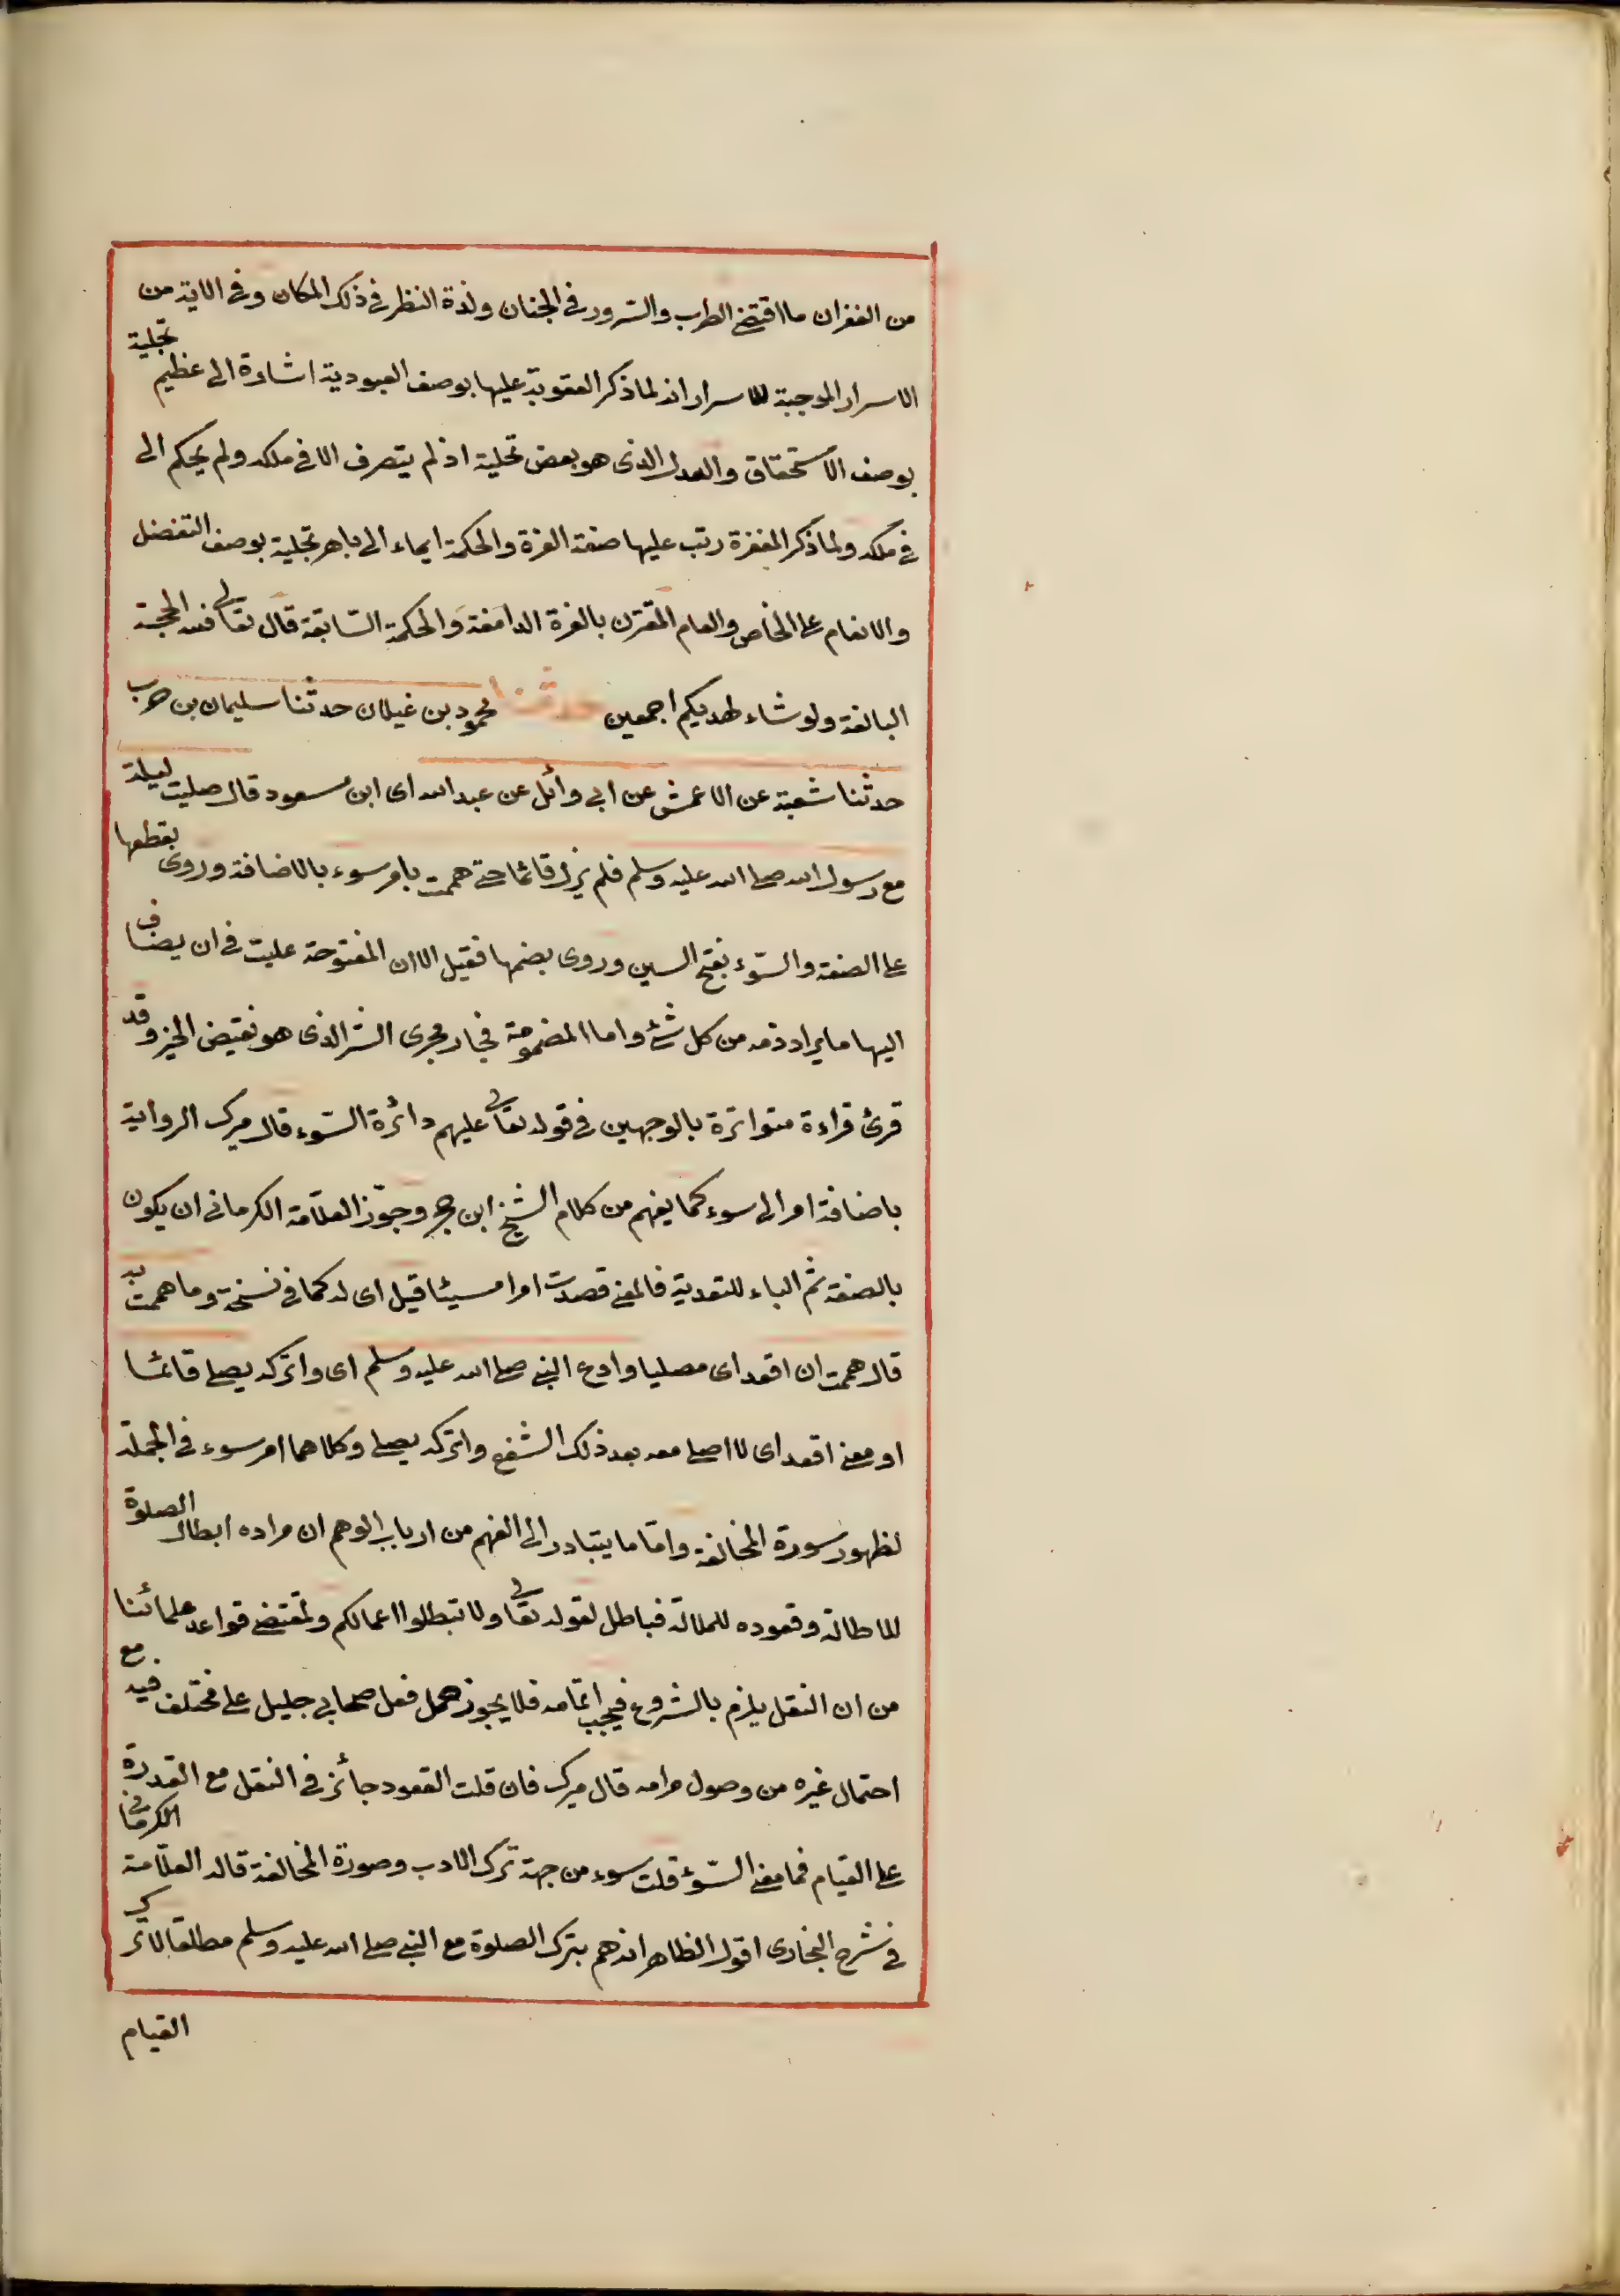 من الغفران ما اقتضى الطرب والسّرور فى الجنان ولذة النظر فى ذلك المكان وفى الاية من
الاسرار الموجبة للاسرار انه لما ذكر العقوبة عليها بوصف العبودية اشارة الى عظيم تجلية
بوصف الاستحقاق والعدل الذى هو بعض تحلية اذ لم يتصرف الا فى ملكه ولم يحكم الى
فى ملكه ولما ذكر المغفرة رتب عليها صفة العزة والحكمة ايماء الى باهر تجلية بوصف التفضل
والانعام على الخاص والعام المقترن بالعزة الدامغة والحكمة السّابقة قال تعالى فلله الحجة
البالغة ولو شاء لهديكم اجمعين حدثنا محمود بن غيلان حدثنا سليمان بن حرب
حدثنا شعبة عن الاعمش عن ابى وائل عن عبد الله اى ابن مسعود قال صليت ليلة
مع رسول الله صلى الله عليه وسلم فلم يزل قائما حتى هممت بامر سوء بالاضافة وروى بقطعها
على الصفة والسّوء بفتح السين وروى بضمها فقيل الا ان المفتوحة غلبت فى ان يضاف
اليها ما يراد ذمه من كل شئ واما المضمومة فجار مجرى الشر الذى هو نقيض الخير وقد
قرئ قراءة متواترة بالوجهين فى قوله تعالى عليهم دائرة السّوء قال ميرك الرواية
باضافة امر الى سوء كما يفهم من كلام الشيخ ابن حجر وجوّز العلّامة الكرمانى ان يكون
بالصفة ثم الباء للتعدية فالمعنى قصدت امرا مسيئا قيل اى له كما فى نسخة وما هممت به
قال هممت ان اقعد اى مصليا وادع النبى صلى الله عليه وسلم اى واتركه يصلى قائما
او معنى اقعد اى لا اصلى معه بعد ذلك الشفع واتركه يصلى وكلاهما امر سوء فى الجملة
لظهور سورة المخالفة وامّا ما يتبادر الى الفهم من ارباب الوهم ان مراده ابطال الصلوة
للاطالة وقعوده للملالة فباطل لقوله تعالى ولا تبطلوا اعمالكم ولمقتضى قواعد علمائنا
من ان النفل يلزم بالشروع فيجب اتمامه فلا يجوز حمل فعل صحابى جليل على مختلف فيه مع
احتمال غيره من وصول مرامه قال ميرك فان قلت القعود جائز فى النفل مع القدرة
على القيام فما معنى السّوء قلت سوء من جهة ترك الادب وصورة المخالفة قاله العلّامة الكرمانى
فى شرح البخارى اقول الظاهر انه هم بترك الصلوة مع النبى صلى الله عليه وسلم مطلقا لا ترك
القيام